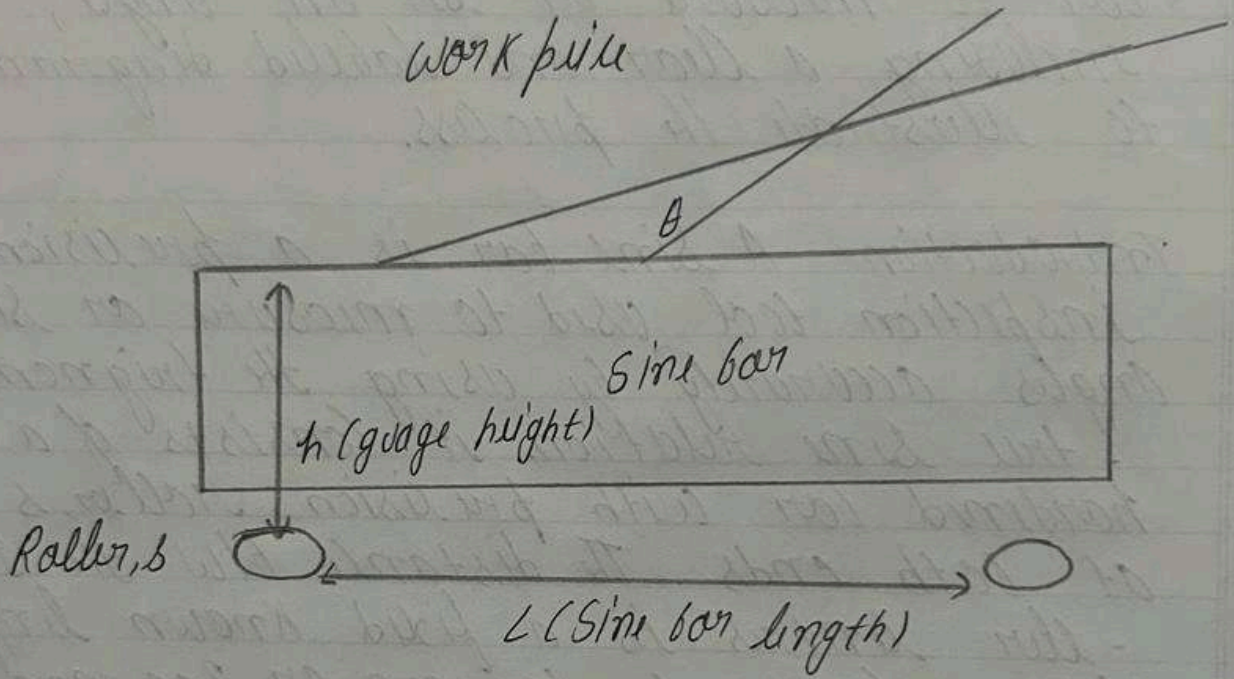 work piece
θ
Sine bar
h (guage height)
Roller,s
L (Sine bar length)